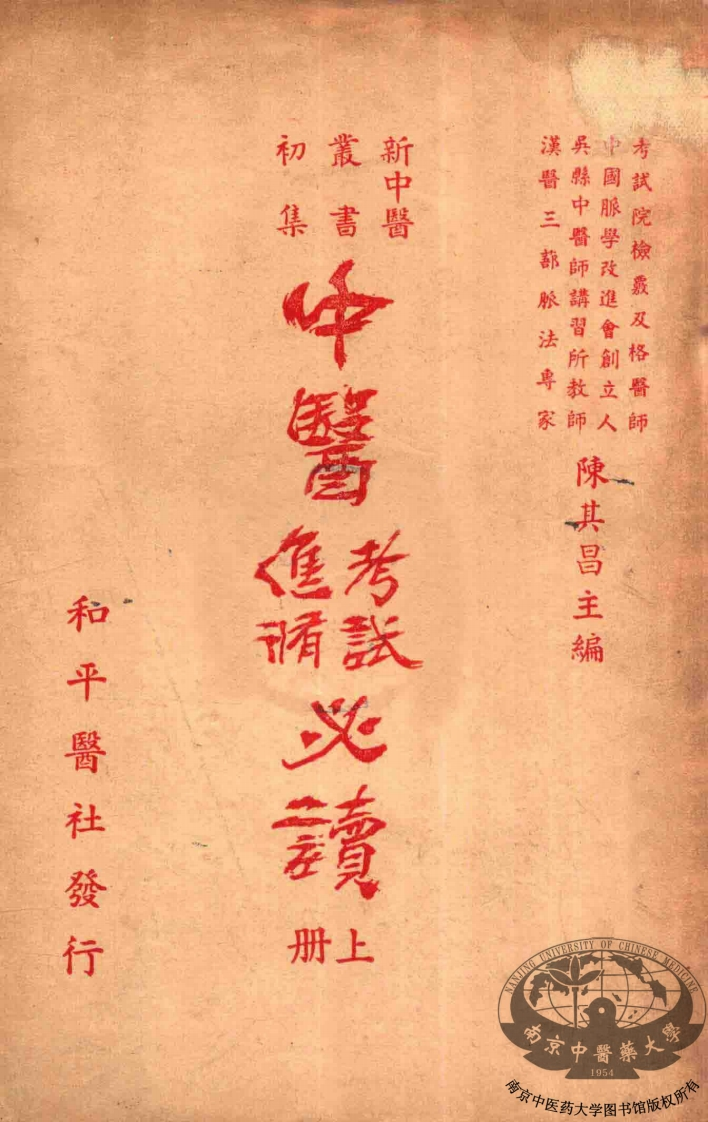 考試院檢覈及格醫師
中國脈學改進會創立人
吳縣中醫師講習所教師
漢醫三部脈法專家
陳其昌主編
新中醫
叢書
初集
中醫
考試
進修
必讀
上
册
和平醫社發行
NANJING UNIVERSITY OF CHINESE MEDICINE
南京中醫藥大學
1954
南京中医药大学图书馆版权所有